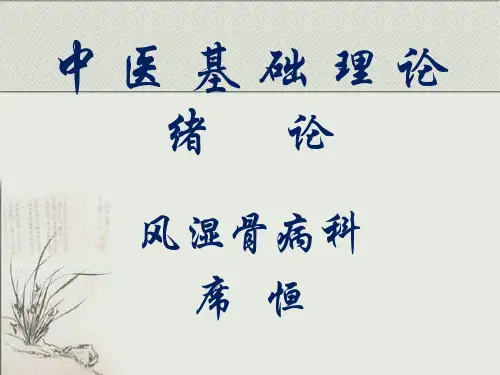 中医基础理论
绪 论
风湿骨病科
席 恒